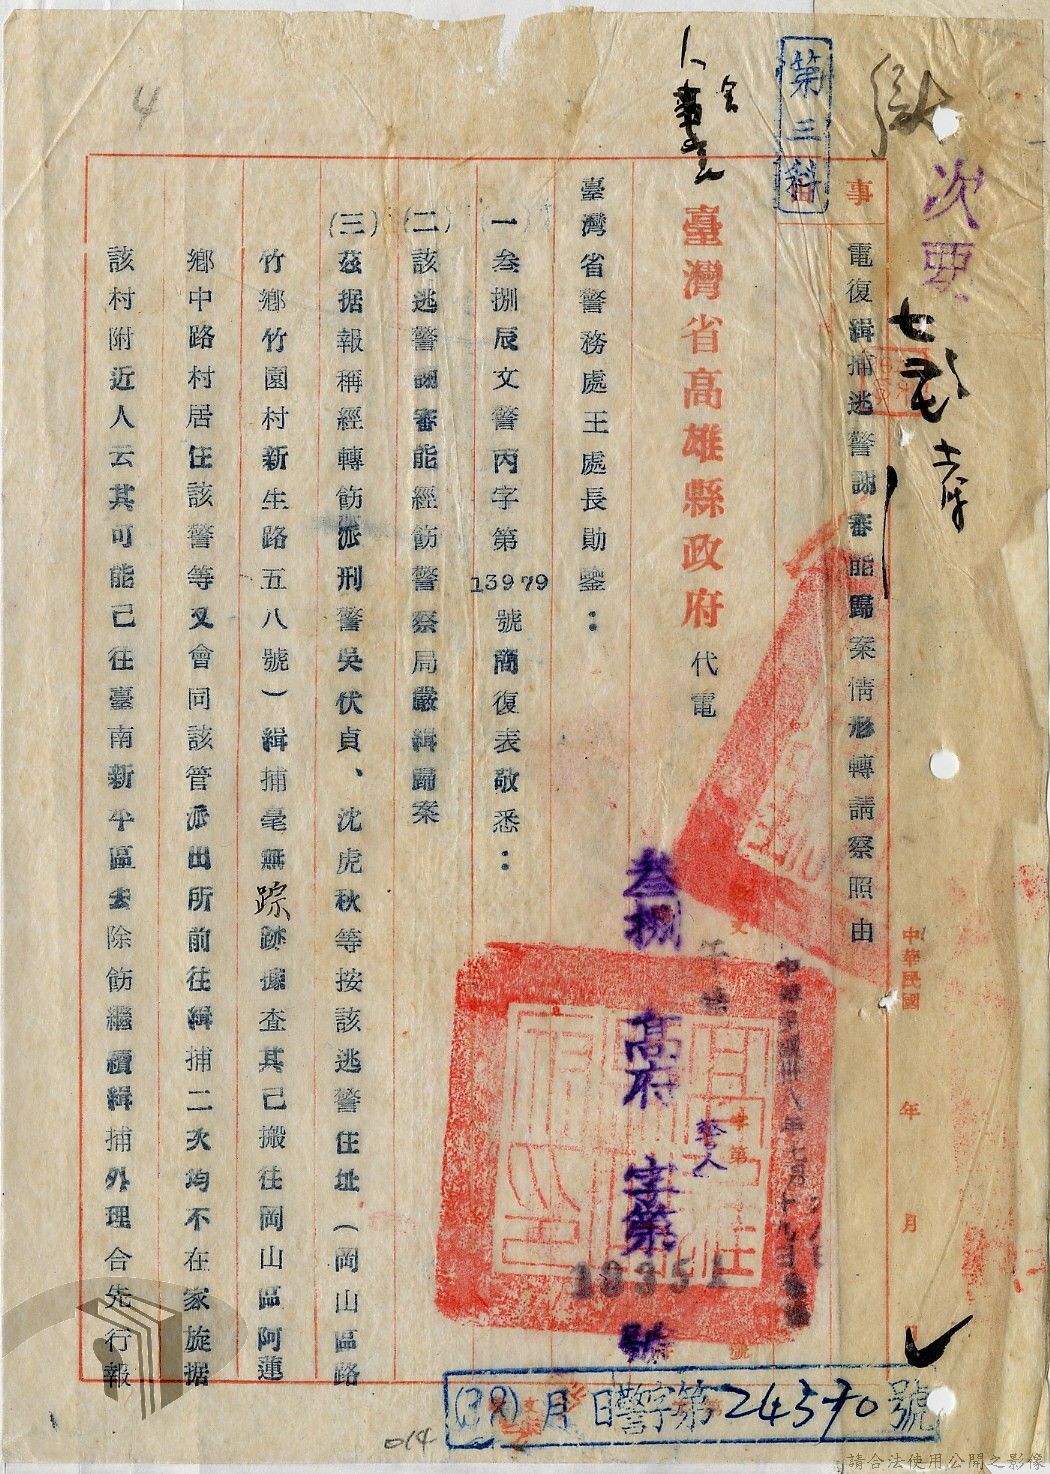 次要
第三科
4
事
電復緝捕逃警謝審能歸案情形轉請察照由
臺灣省高雄縣政府 代電
中華民國 年 月 日
中華民國卅八年七月十九日
叁捌 高府 警人 字第 號
臺灣省警務處王處長勛鑒：
一叁捌辰文警丙字第13979號簡復表敬悉：
(二)該逃警謝審能經飭警察局嚴緝歸案
(三)茲据報稱經轉飭派刑警吳伏貞、沈虎秋等按該逃警住址（岡山區路
竹鄉竹園村新生路五八號）緝捕毫無踪跡據查其已搬往岡山區阿蓮
鄉中路村居住該警等又會同該管派出所前往緝捕二次均不在家旋据
該村附近人云其可能已往臺南新平區去除飭繼續緝捕外理合先行報
(38)月 日警字第24570號
014
請合法使用公開之影像